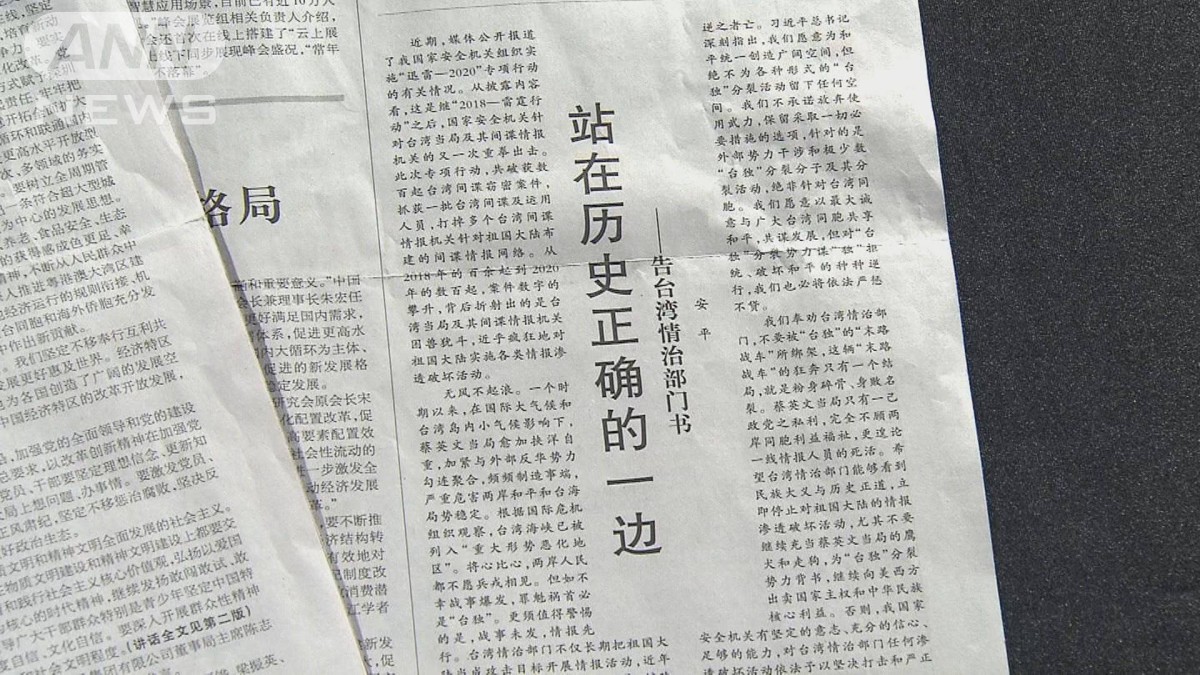 ANN
NEWS
智慧应用场景，目前已有近10万人
峰会展览组相关负责人介绍，
还首次在线上搭建了“云上展
线下同步展现峰会盛况，“常年
不落幕”。
格局
和重要意义。”中国
会长兼理事长朱宏任
更好满足国内需求，
体系，促进更高水
内大循环为主体、
促进的新发展格
稳定发展。
研究会原会长宋
化配置改革，促
高要素配置效
会性流动的
一步激发全
动经济发展
革。”
要不断推
济结构转
有效地对
制度改
消费潜
江学者
新发
促
我们坚定不移奉行互利共
发展更好惠及世界。经济特区
也为各国创造了广阔的发展空
中国经济特区的改革开放发展，
加强党的全面领导和党的建设
总要求，以改革创新精神在加强党
党员、干部要坚定理想信念、更新知
大局上想问题、办事情。要激发党员、
正风肃纪，坚定不移惩治腐败，坚决反
好政治生态。
质文明和精神文明全面发展的社会主义。
物质文明建设和精神文明建设上都要交
和践行社会主义核心价值观，弘扬以爱国
核心的时代精神，继续发扬敢闯敢试、敢
导广大干部群众特别是青少年坚定中国特
度自信、文化自信。要深入开展群众性精神
社会文明程度。(讲话全文见第二版)
集团有限公司董事局主席陈志
梁振英、
近期，媒体公开报道
了我国家安全机关组织实
施“迅雷—2020”专项行动
的有关情况。从披露内容
看，这是继“2018—雷霆行
动”之后，国家安全机关针
对台湾当局及其间谍情报
机关的又一次重拳出击。
此次专项行动，共破获数
百起台湾间谍窃密案件，
抓获一批台湾间谍及运用
人员，打掉多个台湾间谍
情报机关针对祖国大陆布
建的间谍情报网络。从
2018年的百余起到2020
年的数百起，案件数字的
攀升，背后折射出的是台
湾当局及其间谍情报机关
困兽犹斗，近乎疯狂地对
祖国大陆实施各类情报渗
透破坏活动。
无风不起浪。一个时
期以来，在国际大气候和
台湾岛内小气候影响下，
蔡英文当局愈加挟洋自
重，加紧与外部反华势力
勾连聚合，频频制造事端，
严重危害两岸和平和台海
局势稳定。根据国际危机
组织观察，台湾海峡已被
列入“重大形势恶化地
区”。将心比心，两岸人民
都不愿兵戎相见。但如不
幸战事爆发，罪魁祸首必
是“台独”。更须值得警惕
的是，战事未发，情报先
行。台湾情治部门不仅长期把祖国大
陆当成攻击目标开展情报活动，近年
站在历史正确的一边
——告台湾情治部门书
安平
逆之者亡。习近平总书记
深刻指出，我们愿意为和
平统一创造广阔空间，但
绝不为各种形式的“台
独”分裂活动留下任何空
间。我们不承诺放弃使
用武力，保留采取一切必
要措施的选项，针对的是
外部势力干涉和极少数
“台独”分裂分子及其分
裂活动，绝非针对台湾同
胞。我们愿意以最大诚
意与广大台湾同胞共享
和平，共谋发展，但对“台
独”分裂势力谋“独”拒
统、破坏和平的种种逆
行，我们也必将依法严惩
不贷。
我们奉劝台湾情治部
门，不要被“台独”的“末路
战车”所绑架，这辆“末路
战车”的狂奔只有一个结
局，就是粉身碎骨、身败名
裂。蔡英文当局只有一己
政党之私利，完全不顾两
岸同胞利益福祉，更遑论
一线情报人员的死活。希
望台湾情治部门能够看到
民族大义与历史正道，立
即停止对祖国大陆的情报
渗透破坏活动，尤其不要
继续充当蔡英文当局的鹰
犬和走狗，为“台独”分裂
势力背书，继续向美西方
出卖国家主权和中华民族
核心利益。否则，我国家
安全机关有坚定的意志、充分的信心、
足够的能力，对台湾情治部门任何渗
透破坏活动依法予以坚决打击和严正